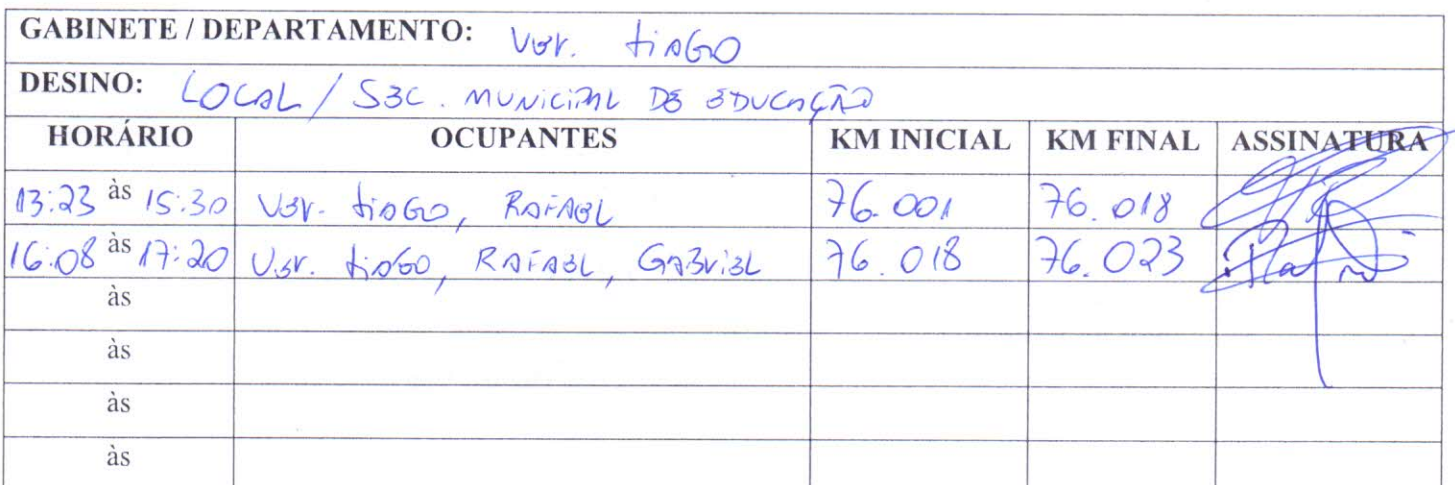 GABINETE / DEPARTAMENTO: Ver. tiAGO
DESINO: LOCAL / SEC. MUNICIPAL DE EDUCAÇÃO
HORÁRIO OCUPANTES KM INICIAL KM FINAL ASSINATURA
13:23 às 15:30 Ver. tiAGO, RAFAEL 76.001 76.018
16:08 às 17:20 Ver. tiAGO, RAFAEL, GABriEL 76.018 76.023
às
às
às
às